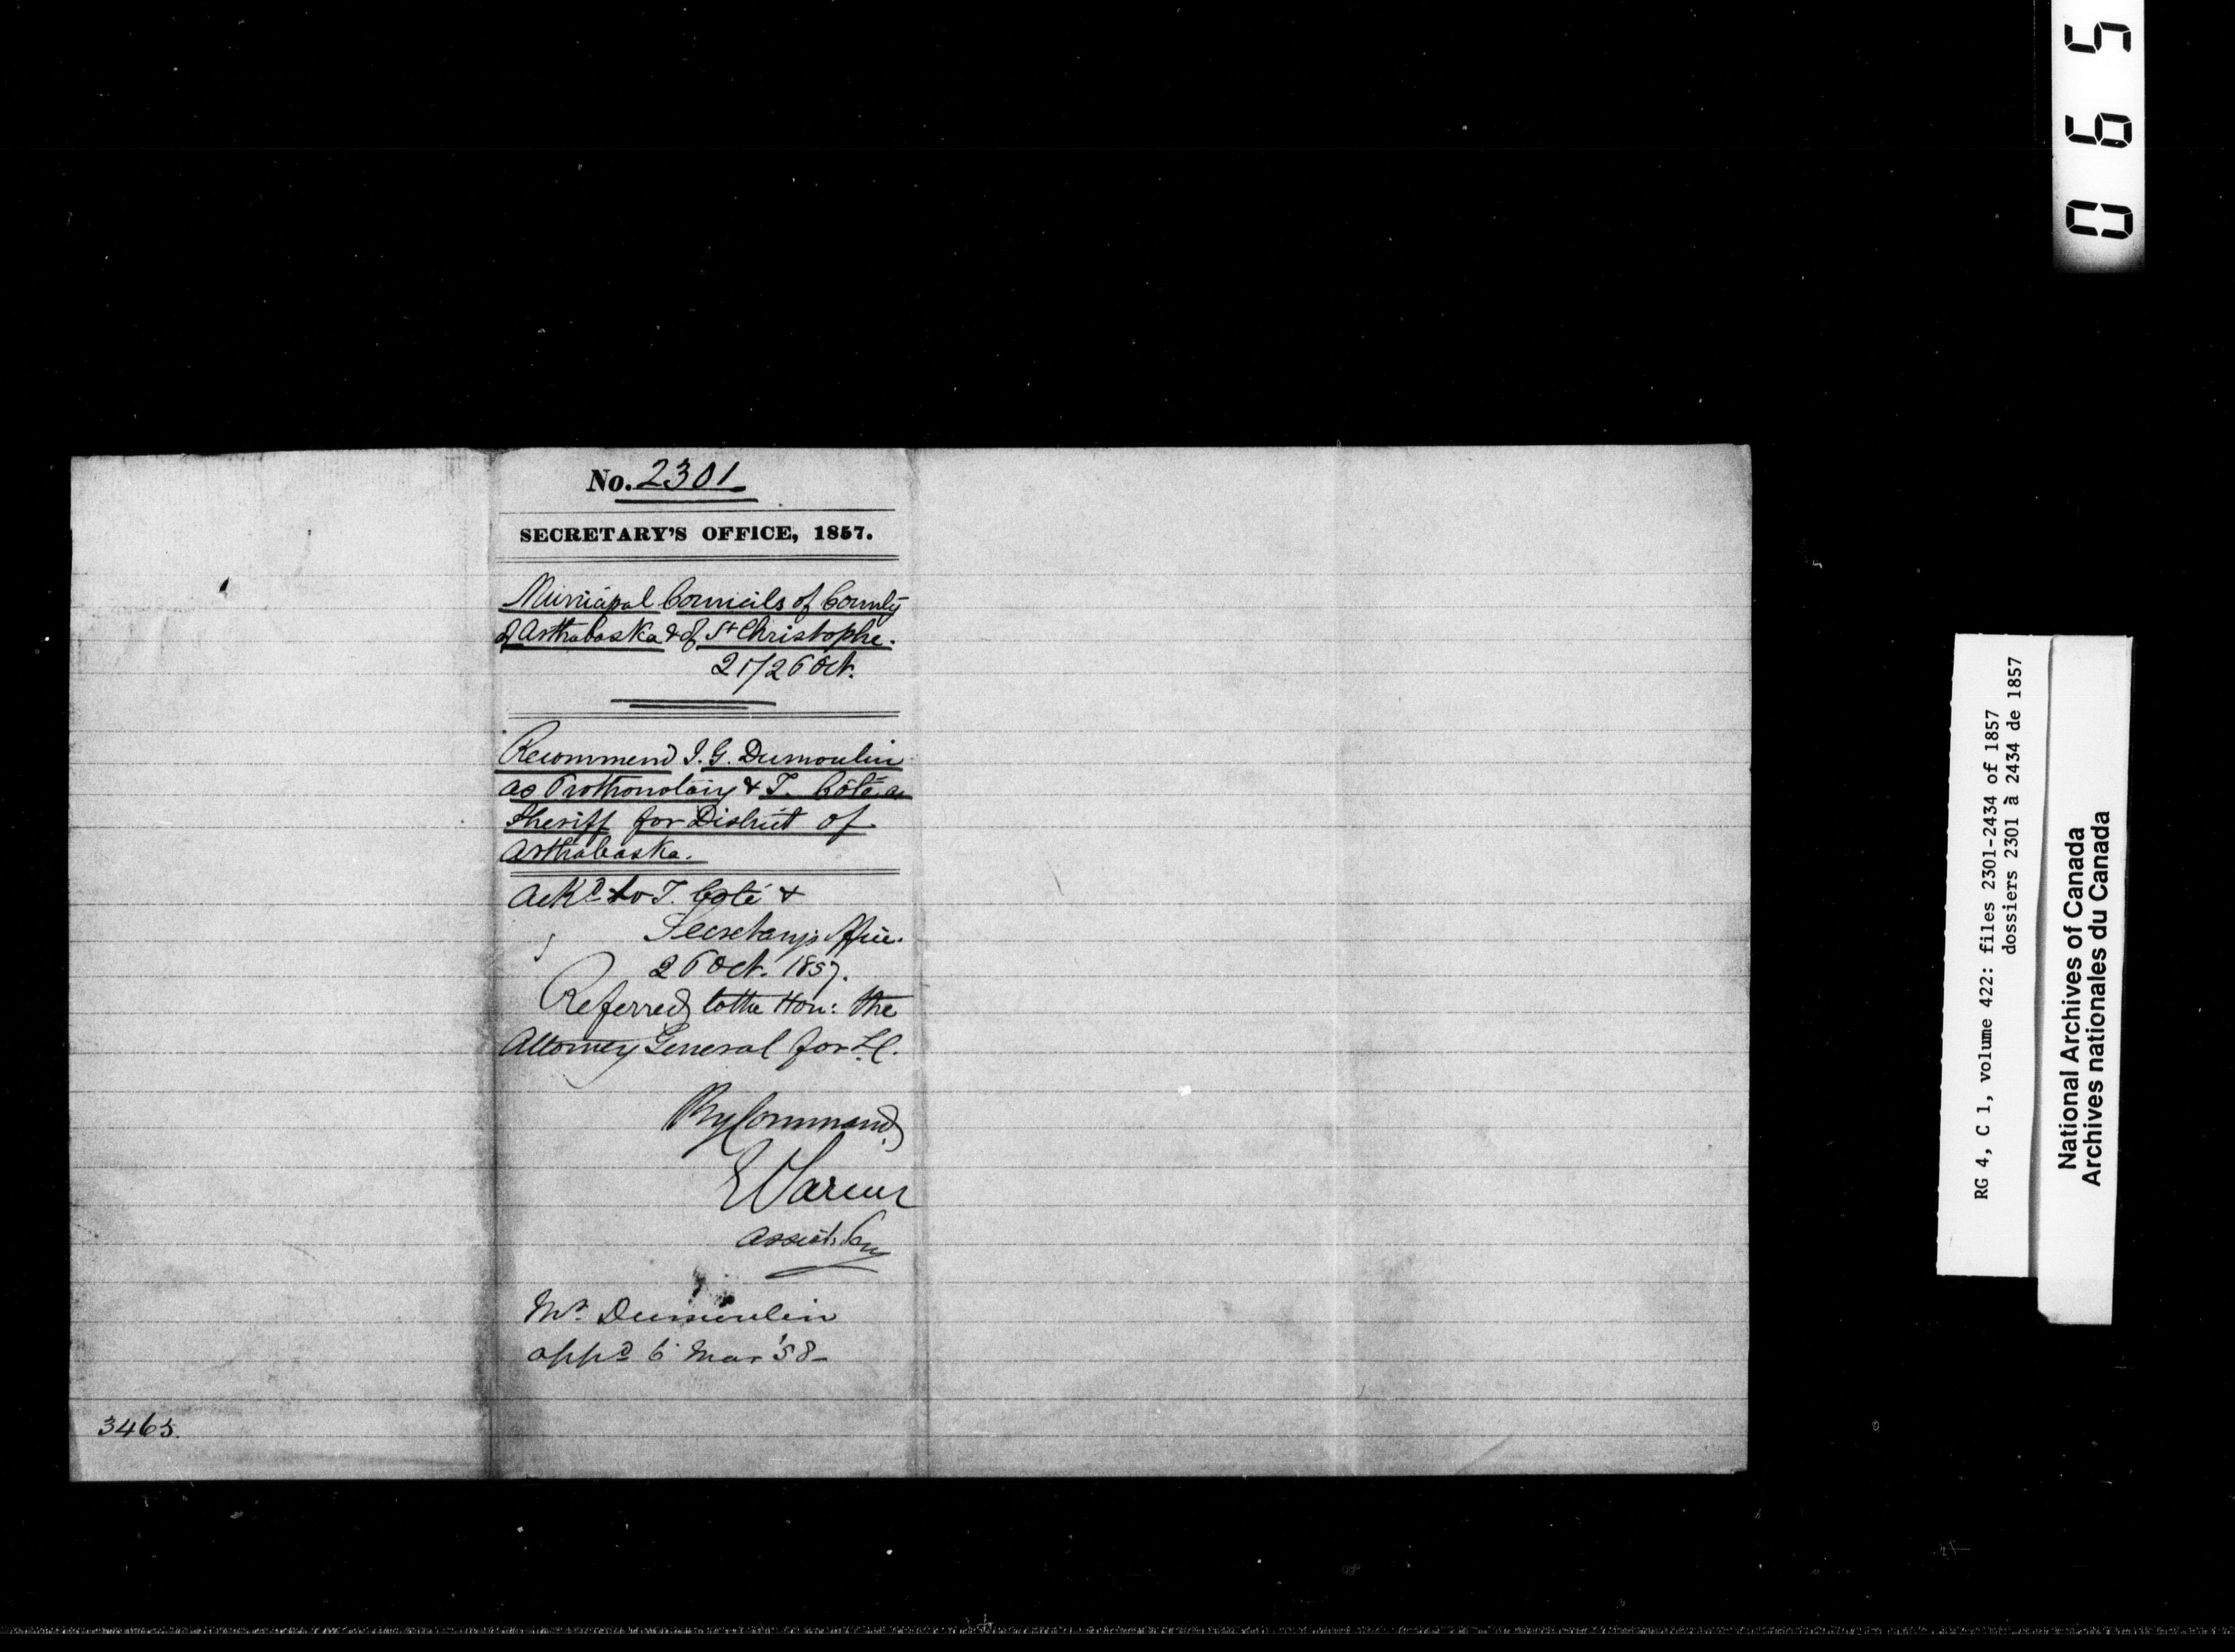 No. 2301
SECRETARY'S OFFICE, 1857.
Municipal Councils of County
of Arthabaska & of St Christophe.
21/26 Oct.
Recommend J. G. Dumoulin
as Prothonotary & T. Coté as
Sheriff for District of
Arthabaska.
Ackd to T. Coté &
Secretary's Office.
26 Oct. 1857.
Referred to the Hon: the
Attorney General for L.C.
By Command,
E Parent
Assist. Secy
Mr. Dumoulin
appd 6 Mar '58 -
3465.
0695
RG 4, C 1, volume 422: files 2301-2434 of 1857
dossiers 2301 à 2434 de 1857
National Archives of Canada
Archives nationales du Canada